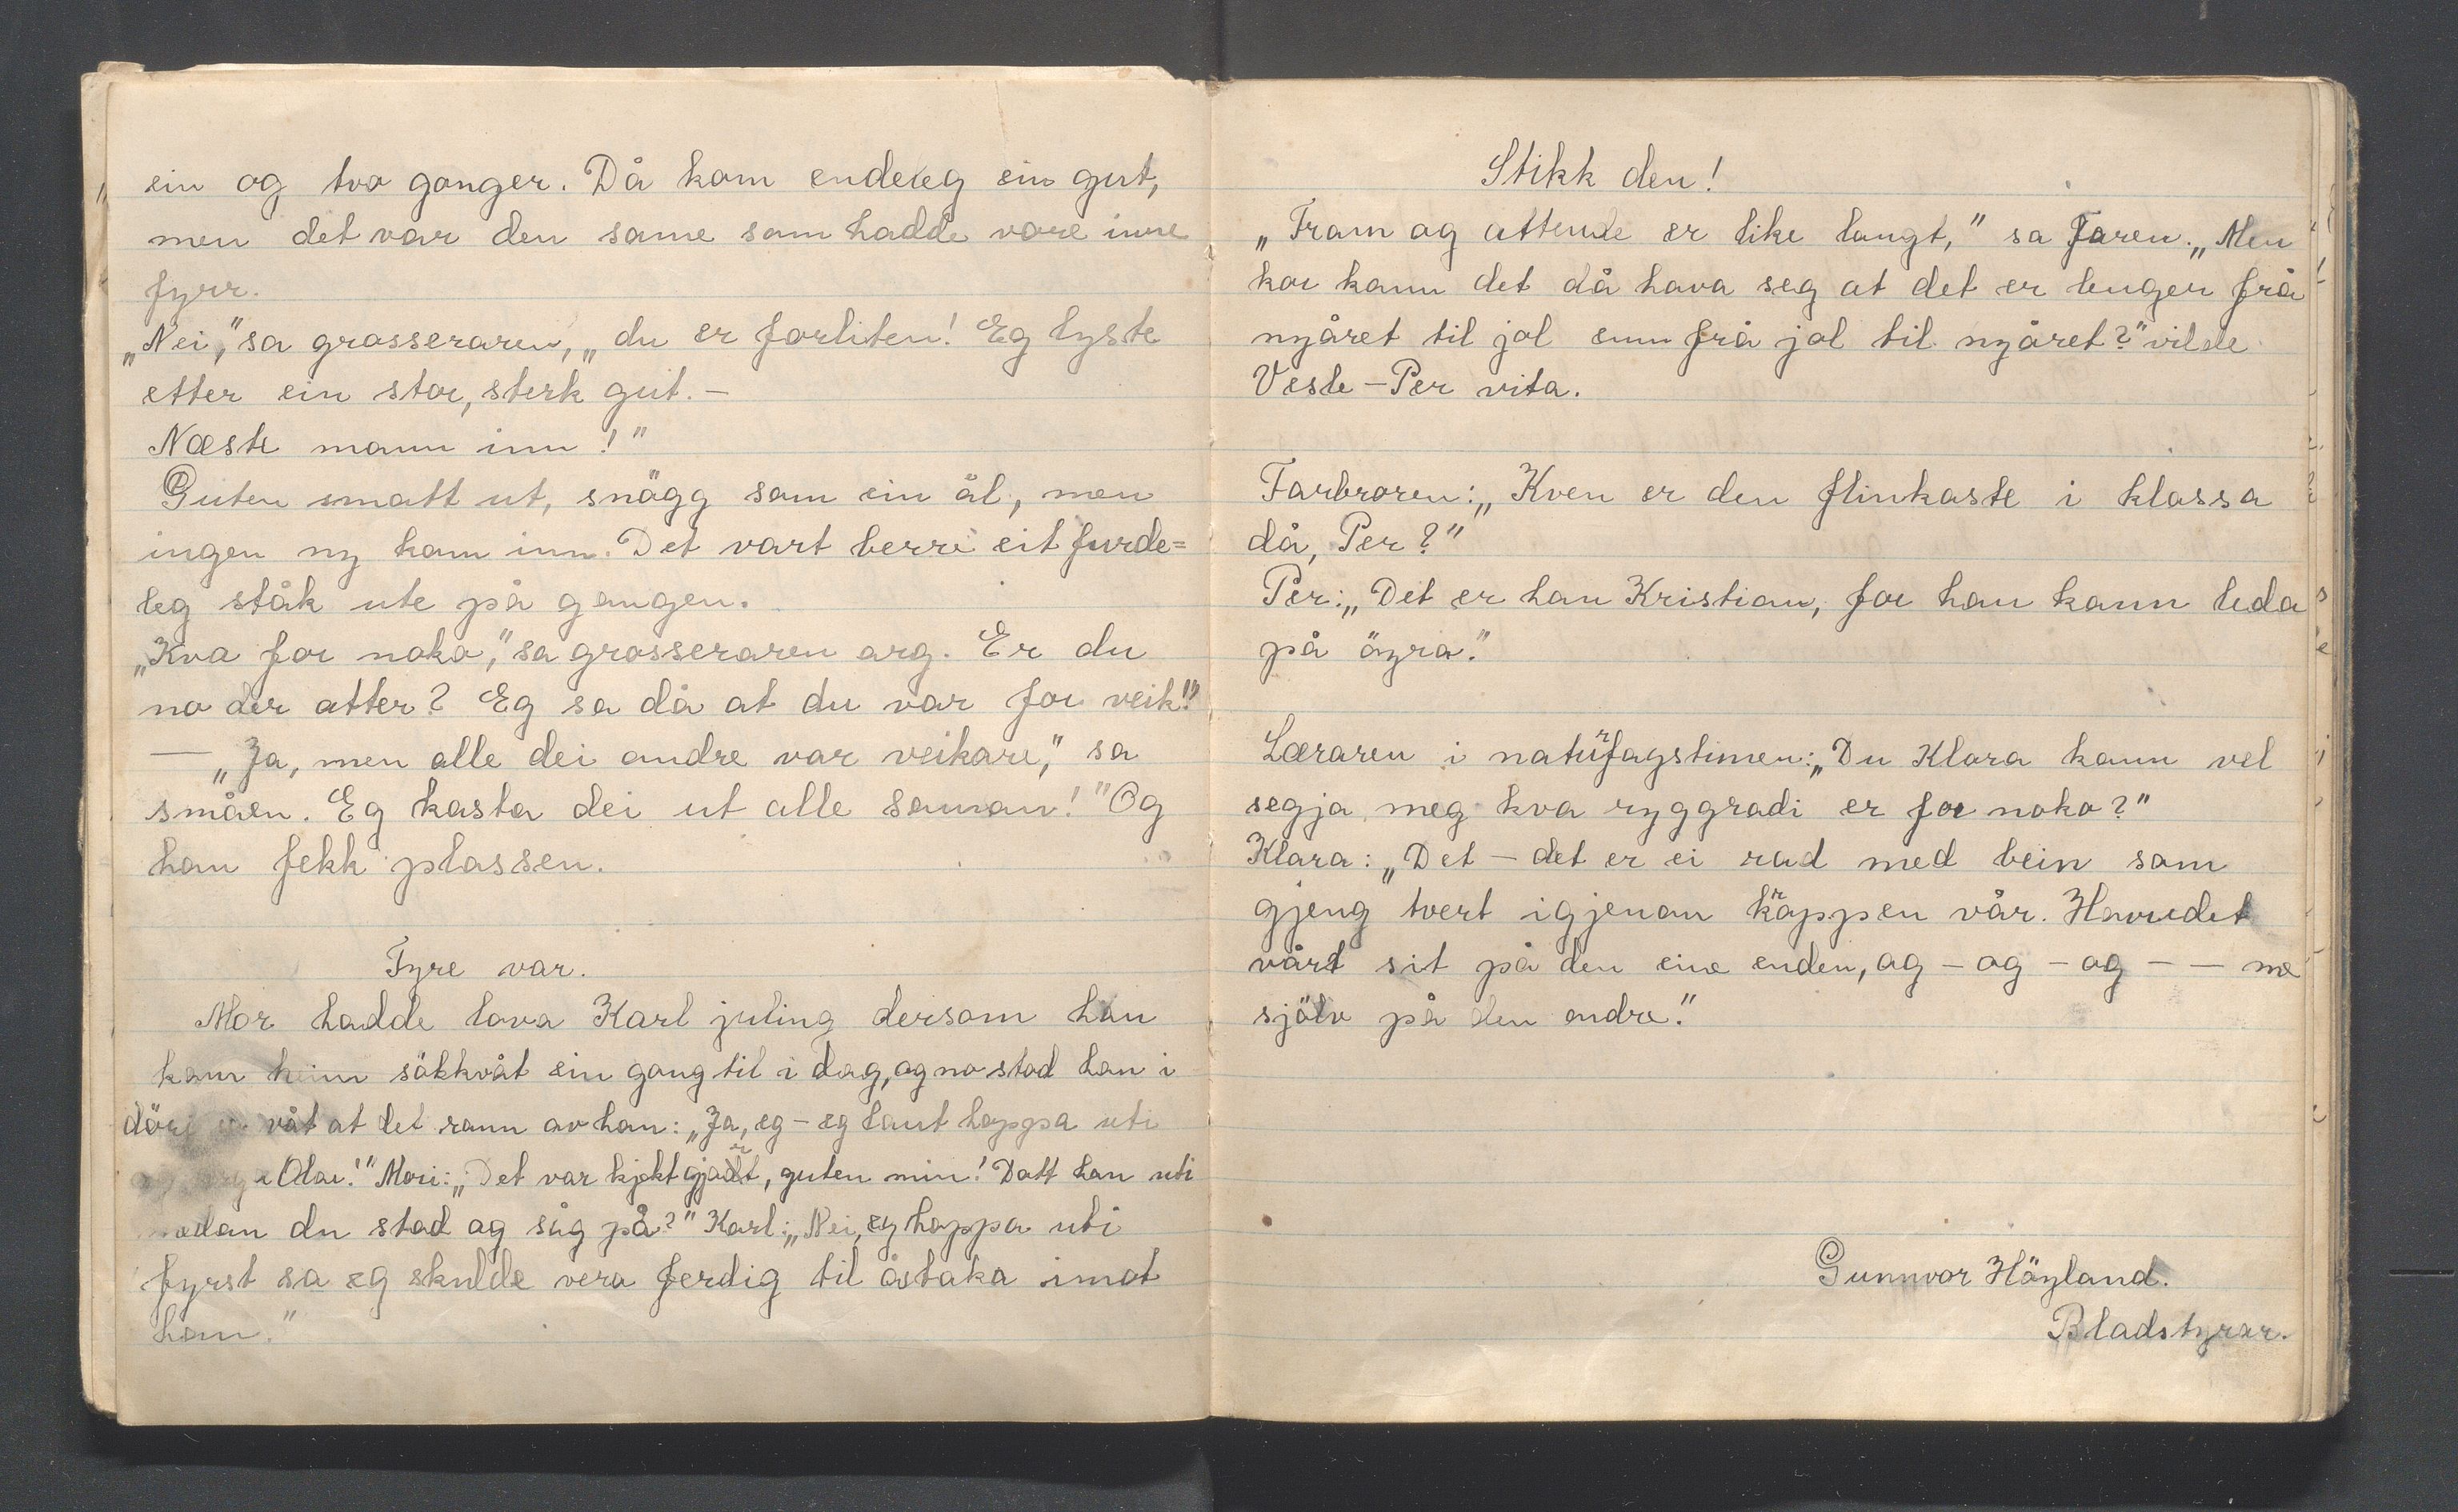 ein og tvo gonger. Då kom endeleg ein gut,
men det var den same som hadde vore inne
fyrr.
„Nei," sa grosseraren, „du er forliten! Eg lyste
etter ein stor, sterk gut. –
Næste mann inn!"
Guten smatt ut, snögg som ein ål, men
ingen ny kom inn. Det vart berre eit furde=
leg ståk ute på gangen.
„Kva for noko," sa grosseraren arg. Er du
no der atter? Eg sa då at du var for veik!"
— „Ja, men alle dei andre var veikare," sa
småen. Eg kasta dei ut alle saman!" Og
han fekk plassen.
Fyre var.
Mor hadde lova Karl juling dersom han
kom heim sökkvåt ein gong til i dag, og no stod han i
döri våt at det rann av han: „Ja, eg – eg laut hoppa uti
Olav!" Mori: „Det var kjekt gjort, guten min! Datt han uti
medan du stod og såg på?" Karl: „Nei, eg hoppa uti
fyrst sa eg skulde vera ferdig til åstaka imot
han."
Stikk den!
„Fram og attende er like langt," sa Faren. „Men
kor kann det då hava seg at det er lenger frå
nyåret til jol enn frå jol til nyåret?" vilde
Vesle-Per vita.
Farbroren: „Kven er den flinkaste i klassa
då, Per?"
Per: „Det er han Kristian, for han kann leda
på öyra."
Læraren i naturfagstimen: „Du Klara kann vel
segja meg kva ryggradi er for noko?"
Klara: „Det – det er ei rad med bein som
gjeng tvert igjenom kroppen vår. Hovudet
vårt sit på den eine enden, og – og – og – – me
sjölv på den andre."
Gunnvor Höyland.
Bladstyrar.